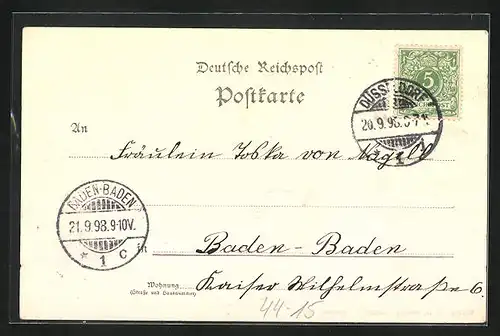 Deutsche Reichspost
Postkarte
5
DÜSSELDORF
20.9.98.
1
An
Fräulein Toska von Nagell
BADEN-BADEN
21.9.98.9-10V.
* 1 c
in Baden-Baden
Wohnung
(Straße und Hausnummer)
Kaiser Wilhelmstraße 6.
44-15